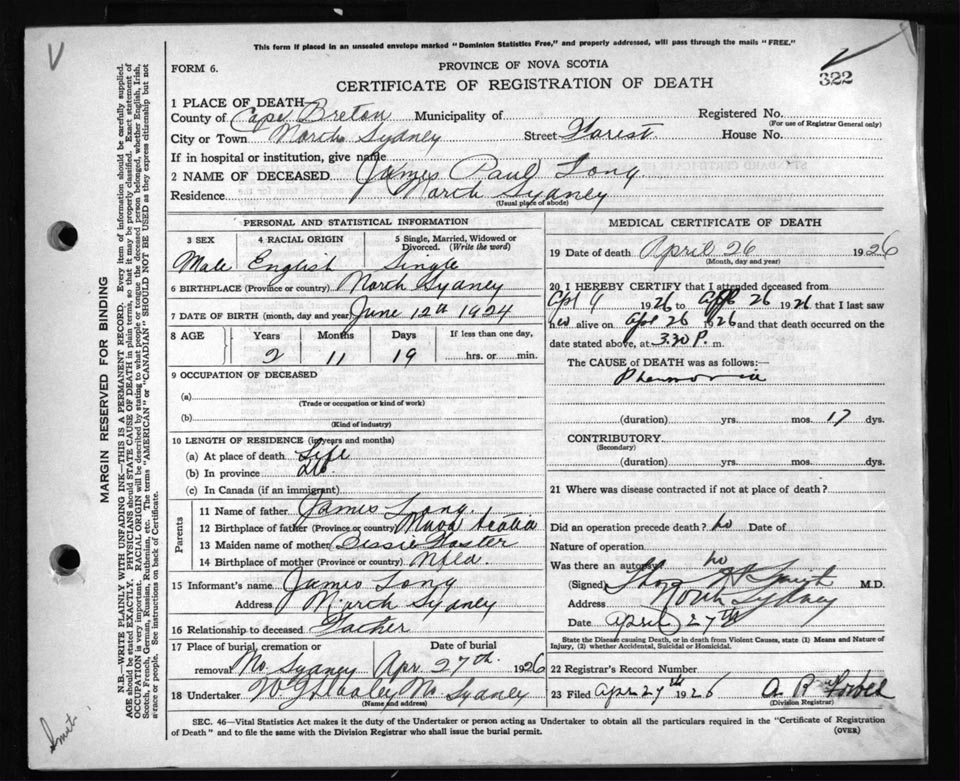 This form if placed in an unsealed envelope marked "Dominion Statistics Free," and properly addressed, will pass through the mails "FREE."
FORM 6.
PROVINCE OF NOVA SCOTIA
CERTIFICATE OF REGISTRATION OF DEATH
322
1 PLACE OF DEATH—
County of Cape Breton Municipality of Registered No.
(For use of Registrar General only)
City or Town North Sydney Street Forest House No.
If in hospital or institution, give name
2 NAME OF DECEASED James Paul Long
Residence North Sydney
(Usual place of abode)
PERSONAL AND STATISTICAL INFORMATION
3 SEX 4 RACIAL ORIGIN 5 Single, Married, Widowed or Divorced. (Write the word)
Male English Single
6 BIRTHPLACE (Province or country) North Sydney
7 DATE OF BIRTH (month, day and year) June 12th 1924
8 AGE Years Months Days If less than one day,
2 11 19 hrs. or min.
9 OCCUPATION OF DECEASED
(a)
(Trade or occupation or kind of work)
(b)
(Kind of industry)
10 LENGTH OF RESIDENCE (in years and months)
(a) At place of death Life
(b) In province do.
(c) In Canada (if an immigrant)
Parents
11 Name of father James Long.
12 Birthplace of father (Province or country) Nova Scotia
13 Maiden name of mother Foster
14 Birthplace of mother (Province or country) Nfld.
15 Informant's name James Long
Address North Sydney
16 Relationship to deceased Father
17 Place of burial, cremation or Date of burial
removal No. Sydney Apr. 27th. 1926
18 Undertaker No Sydney
(Name and address)
MEDICAL CERTIFICATE OF DEATH
19 Date of death April 26 1926
(Month, day and year)
20 I HEREBY CERTIFY that I attended deceased from
Apl 9 1926 to Apl 26 1926 that I last saw
alive on Apl 26 1926 and that death occurred on
date stated above, at 3.30 P. m.
The CAUSE of DEATH was as follows:—
Pneumonia
(duration) yrs. mos. 17 dys.
CONTRIBUTORY
(Secondary)
(duration) yrs. mos. dys.
21 Where was disease contracted if not at place of death?
Did an operation precede death? no Date of
Nature of operation
Was there an autopsy no
(Signed) M.D.
Address North Sydney
Date April 27th
State the Disease causing Death, or in death from Violent Causes, state (1) Means and Nature of
Injury, (2) whether Accidental, Suicidal or Homicidal.
22 Registrar's Record Number
23 Filed Apr 27th 1926 A. R. Forbes
(Division Registrar)
SEC. 46—Vital Statistics Act makes it the duty of the Undertaker or person acting as Undertaker to obtain all the particulars required in the "Certificate of Registration
of Death" and to file the same with the Division Registrar who shall issue the burial permit.
(OVER)
MARGIN RESERVED FOR BINDING
N.B.—WRITE PLAINLY WITH UNFADING INK—THIS IS A PERMANENT RECORD. Every item of information should be carefully supplied.
AGE should be stated EXACTLY. PHYSICIANS should STATE CAUSE OF DEATH in plain terms, so that it may be properly classified. Exact statement of
OCCUPATION is very important. RACIAL ORIGIN will be described by stating to what people or tongue the deceased person belonged, whether English, Irish,
Scotch, French, German, Russian, Ruthenian, etc. The terms "AMERICAN" or "CANADIAN" SHOULD NOT BE USED as they express citizenship but not
a race or people. See instructions on back of Certificate.
Smith